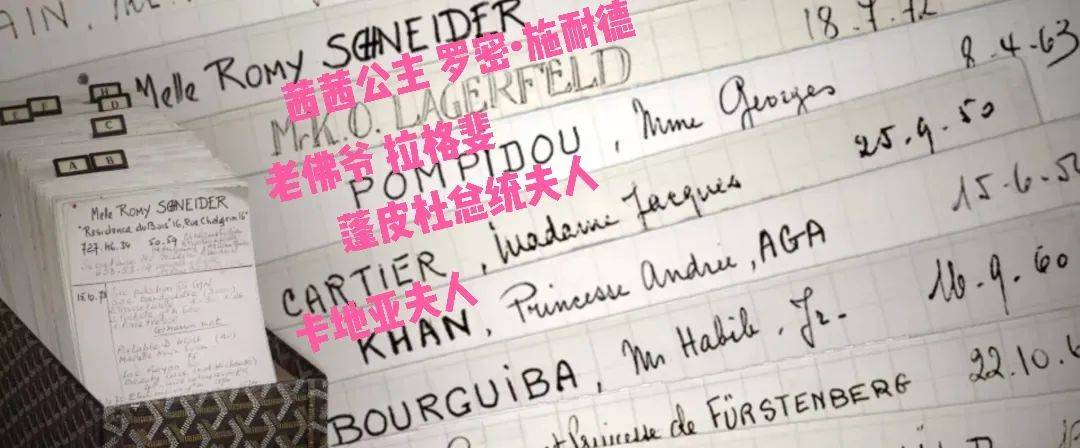 AIN. Ir
Melle ROMY SCHNEIDER
18.7.72
茜茜公主 罗密·施耐德
Mr K.O. LAGERFELD
8-4-63
老佛爷 拉格斐
POMPIDOU, Mme Georges
25.9.50
蓬皮杜总统夫人
CARTIER, Madame Jacques
15-6-5
卡地亚夫人
KHAN, Princesse Andrée, AGA
16-9-60
BOURGUIBA, Mr Habib. Jr.
22.10.6
Princesse de FÜRSTENBERG
E
E
H
D
C
A
B
Melle ROMY SCHNEIDER
"Residence du Bois" 16, Rue Chalgrin 16°
727.46.34